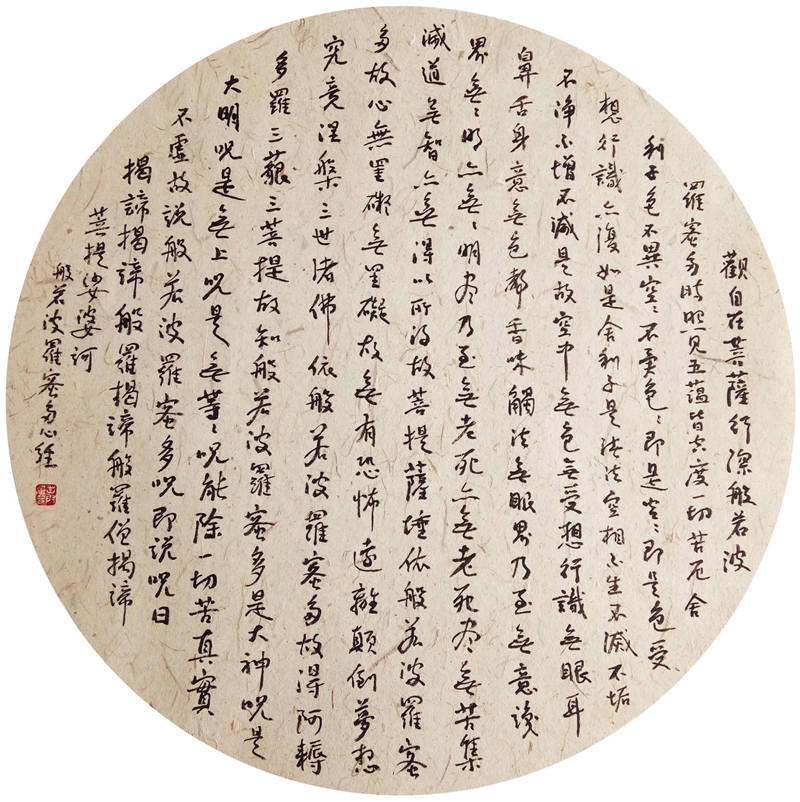 觀自在菩薩行深般若波
羅蜜多時照見五蘊皆空度一切苦厄舍
利子色不異空〻不異色〻即是空〻即是色受
想行識亦復如是舍利子是諸法空相不生不滅不垢
不淨不增不減是故空中無色無受想行識無眼耳
鼻舌身意無色聲香味觸法無眼界乃至無意識
界無〻明亦無〻明尽乃至無老死亦無老死尽無苦集
滅道無智亦無得以所得故菩提薩埵依般若波羅蜜
多故心無罣礙無罣礙故無有恐怖遠離顛倒夢想
究竟涅槃三世諸佛依般若波羅蜜多故得阿耨
多羅三藐三菩提故知般若波羅蜜多是大神咒是
大明咒是無上咒是無等〻咒能除一切苦真實
不虛故說般若波羅蜜多咒即說咒曰
揭諦揭諦般羅揭諦般羅僧揭諦
菩提娑婆訶
般若波羅蜜多心經